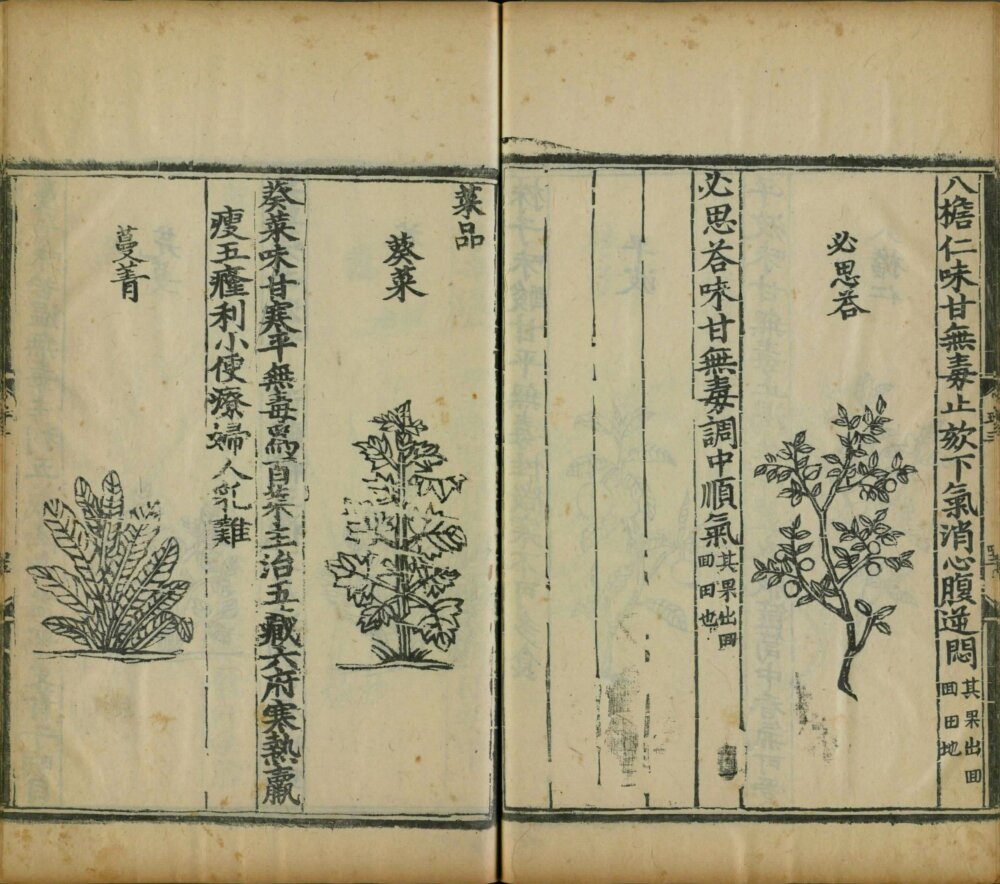 八檐仁味甘無毒止欬下氣消心腹逆悶
其果出回
回田地
必思荅
必思荅味甘無毒調中順氣
其果出回
回田也
菜品
葵菜
葵菜味甘寒平無毒爲百菜主治五藏六府寒熱羸
瘦五癃利小便療婦人乳難
蔓菁